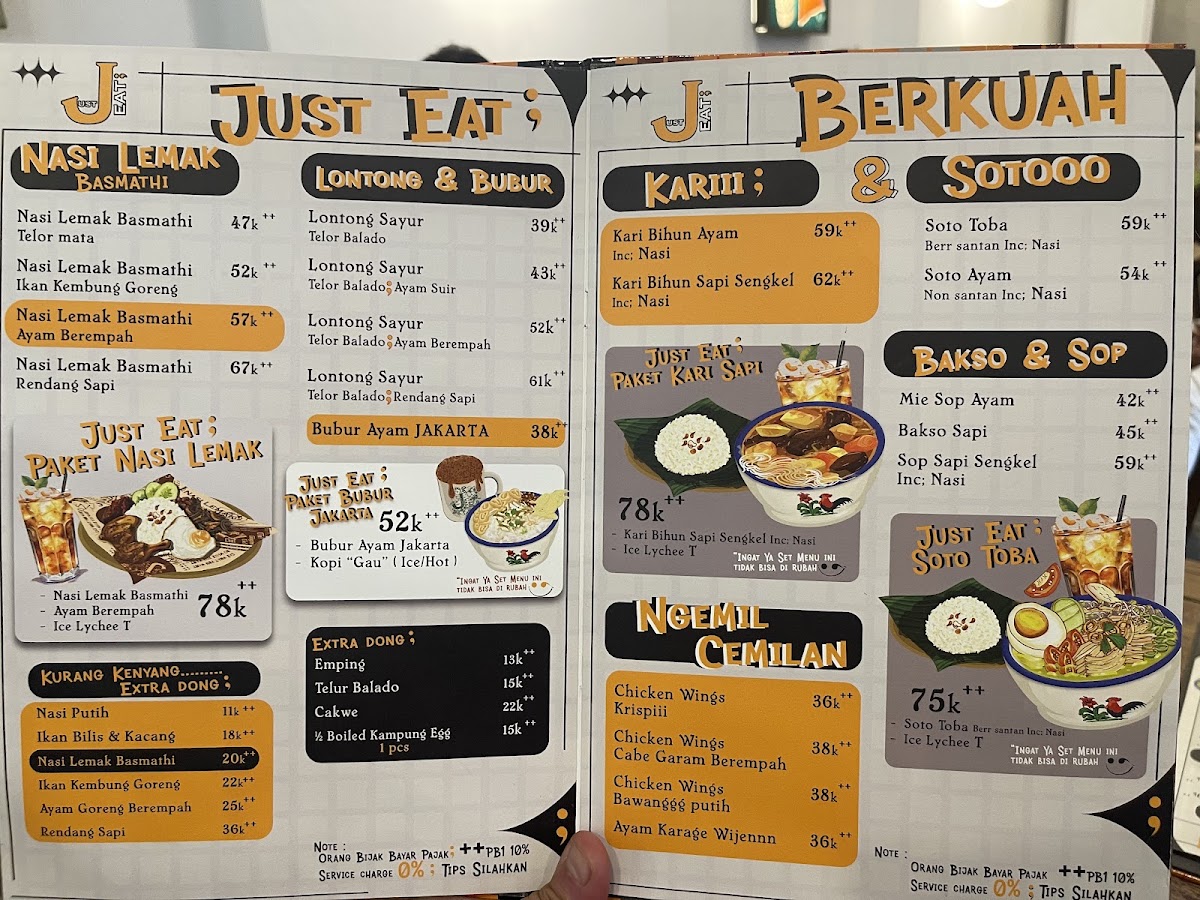 JUST EAT;
JUST EAT ;
NASI LEMAK
BASMATHI
Nasi Lemak Basmathi 47k++
Telor mata
Nasi Lemak Basmathi 52k++
Ikan Kembung Goreng
Nasi Lemak Basmathi 57k++
Ayam Berempah
Nasi Lemak Basmathi 67k++
Rendang Sapi
JUST EAT ;
PAKET NASI LEMAK
- Nasi Lemak Basmathi
- Ayam Berempah
- Ice Lychee T
78k++
KURANG KENYANG.........
EXTRA DONG ;
Nasi Putih 11k++
Ikan Bilis & Kacang 18k++
Nasi Lemak Basmathi 20k++
Ikan Kembung Goreng 22k++
Ayam Goreng Berempah 25k++
Rendang Sapi 36k++
LONTONG & BUBUR
Lontong Sayur 39k++
Telor Balado
Lontong Sayur 43k++
Telor Balado;Ayam Suir
Lontong Sayur 52k++
Telor Balado;Ayam Berempah
Lontong Sayur 61k++
Telor Balado;Rendang Sapi
Bubur Ayam JAKARTA 38k++
JUST EAT ;
PAKET BUBUR
JAKARTA 52k++
- Bubur Ayam Jakarta
- Kopi “Gau” ( Ice/Hot )
"INGAT YA SET MENU INI
TIDAK BISA DI RUBAH
EXTRA DONG ;
Emping 13k++
Telur Balado 15k++
Cakwe 22k++
½ Boiled Kampung Egg 15k++
1 pcs
NOTE :
ORANG BIJAK BAYAR PAJAK; ++PB1 10%
SERVICE CHARGE 0% ; TIPS SILAHKAN
JUST EAT;
BERKUAH
KARIII ;
&
SOTOOO
Kari Bihun Ayam 59k++
Inc; Nasi
Kari Bihun Sapi Sengkel 62k++
Inc; Nasi
JUST EAT ;
PAKET KARI SAPI
78k++
- Kari Bihun Sapi Sengkel Inc; Nasi
- Ice Lychee T
"INGAT YA SET MENU INI
TIDAK BISA DI RUBAH
NGEMIL
CEMILAN
Chicken Wings 36k++
Krispiii
Chicken Wings 38k++
Cabe Garam Berempah
Chicken Wings 38k++
Bawanggg putih
Ayam Karage Wijennn 36k++
Soto Toba 59k++
Berr santan Inc; Nasi
Soto Ayam 54k++
Non santan Inc; Nasi
BAKSO & SOP
Mie Sop Ayam 42k++
Bakso Sapi 45k++
Sop Sapi Sengkel 59k++
Inc; Nasi
JUST EAT ;
SOTO TOBA
75k++
- Soto Toba Berr santan Inc; Nasi
- Ice Lychee T
"INGAT YA SET MENU INI
TIDAK BISA DI RUBAH
NOTE :
ORANG BIJAK BAYAR PAJAK ++PB1 10%
SERVICE CHARGE 0% ; TIPS SILAHKAN